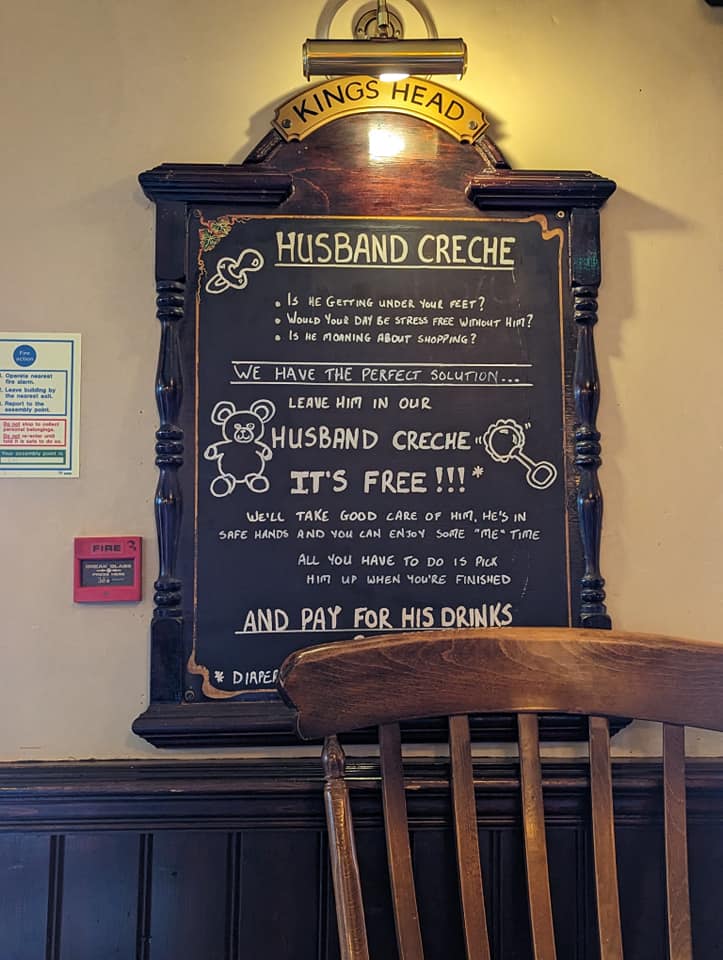 KINGS HEAD
HUSBAND CRECHE
• IS HE GETTING UNDER YOUR FEET?
• WOULD YOUR DAY BE STRESS FREE WITHOUT HIM?
• IS HE MOANING ABOUT SHOPPING?
WE HAVE THE PERFECT SOLUTION...
LEAVE HIM IN OUR
HUSBAND CRECHE
IT'S FREE!!!*
WE'LL TAKE GOOD CARE OF HIM, HE'S IN
SAFE HANDS AND YOU CAN ENJOY SOME "ME" TIME
ALL YOU HAVE TO DO IS PICK
HIM UP WHEN YOU'RE FINISHED
AND PAY FOR HIS DRINKS
* DIAPER
Fire
action
1. Operate nearest
fire alarm.
2. Leave building by
the nearest exit.
3. Report to the
assembly point.
Do not stop to collect
personal belongings.
Do not re-enter until
told it is safe to do so.
Your assembly point is
FIRE
BREAK GLASS
PRESS HERE